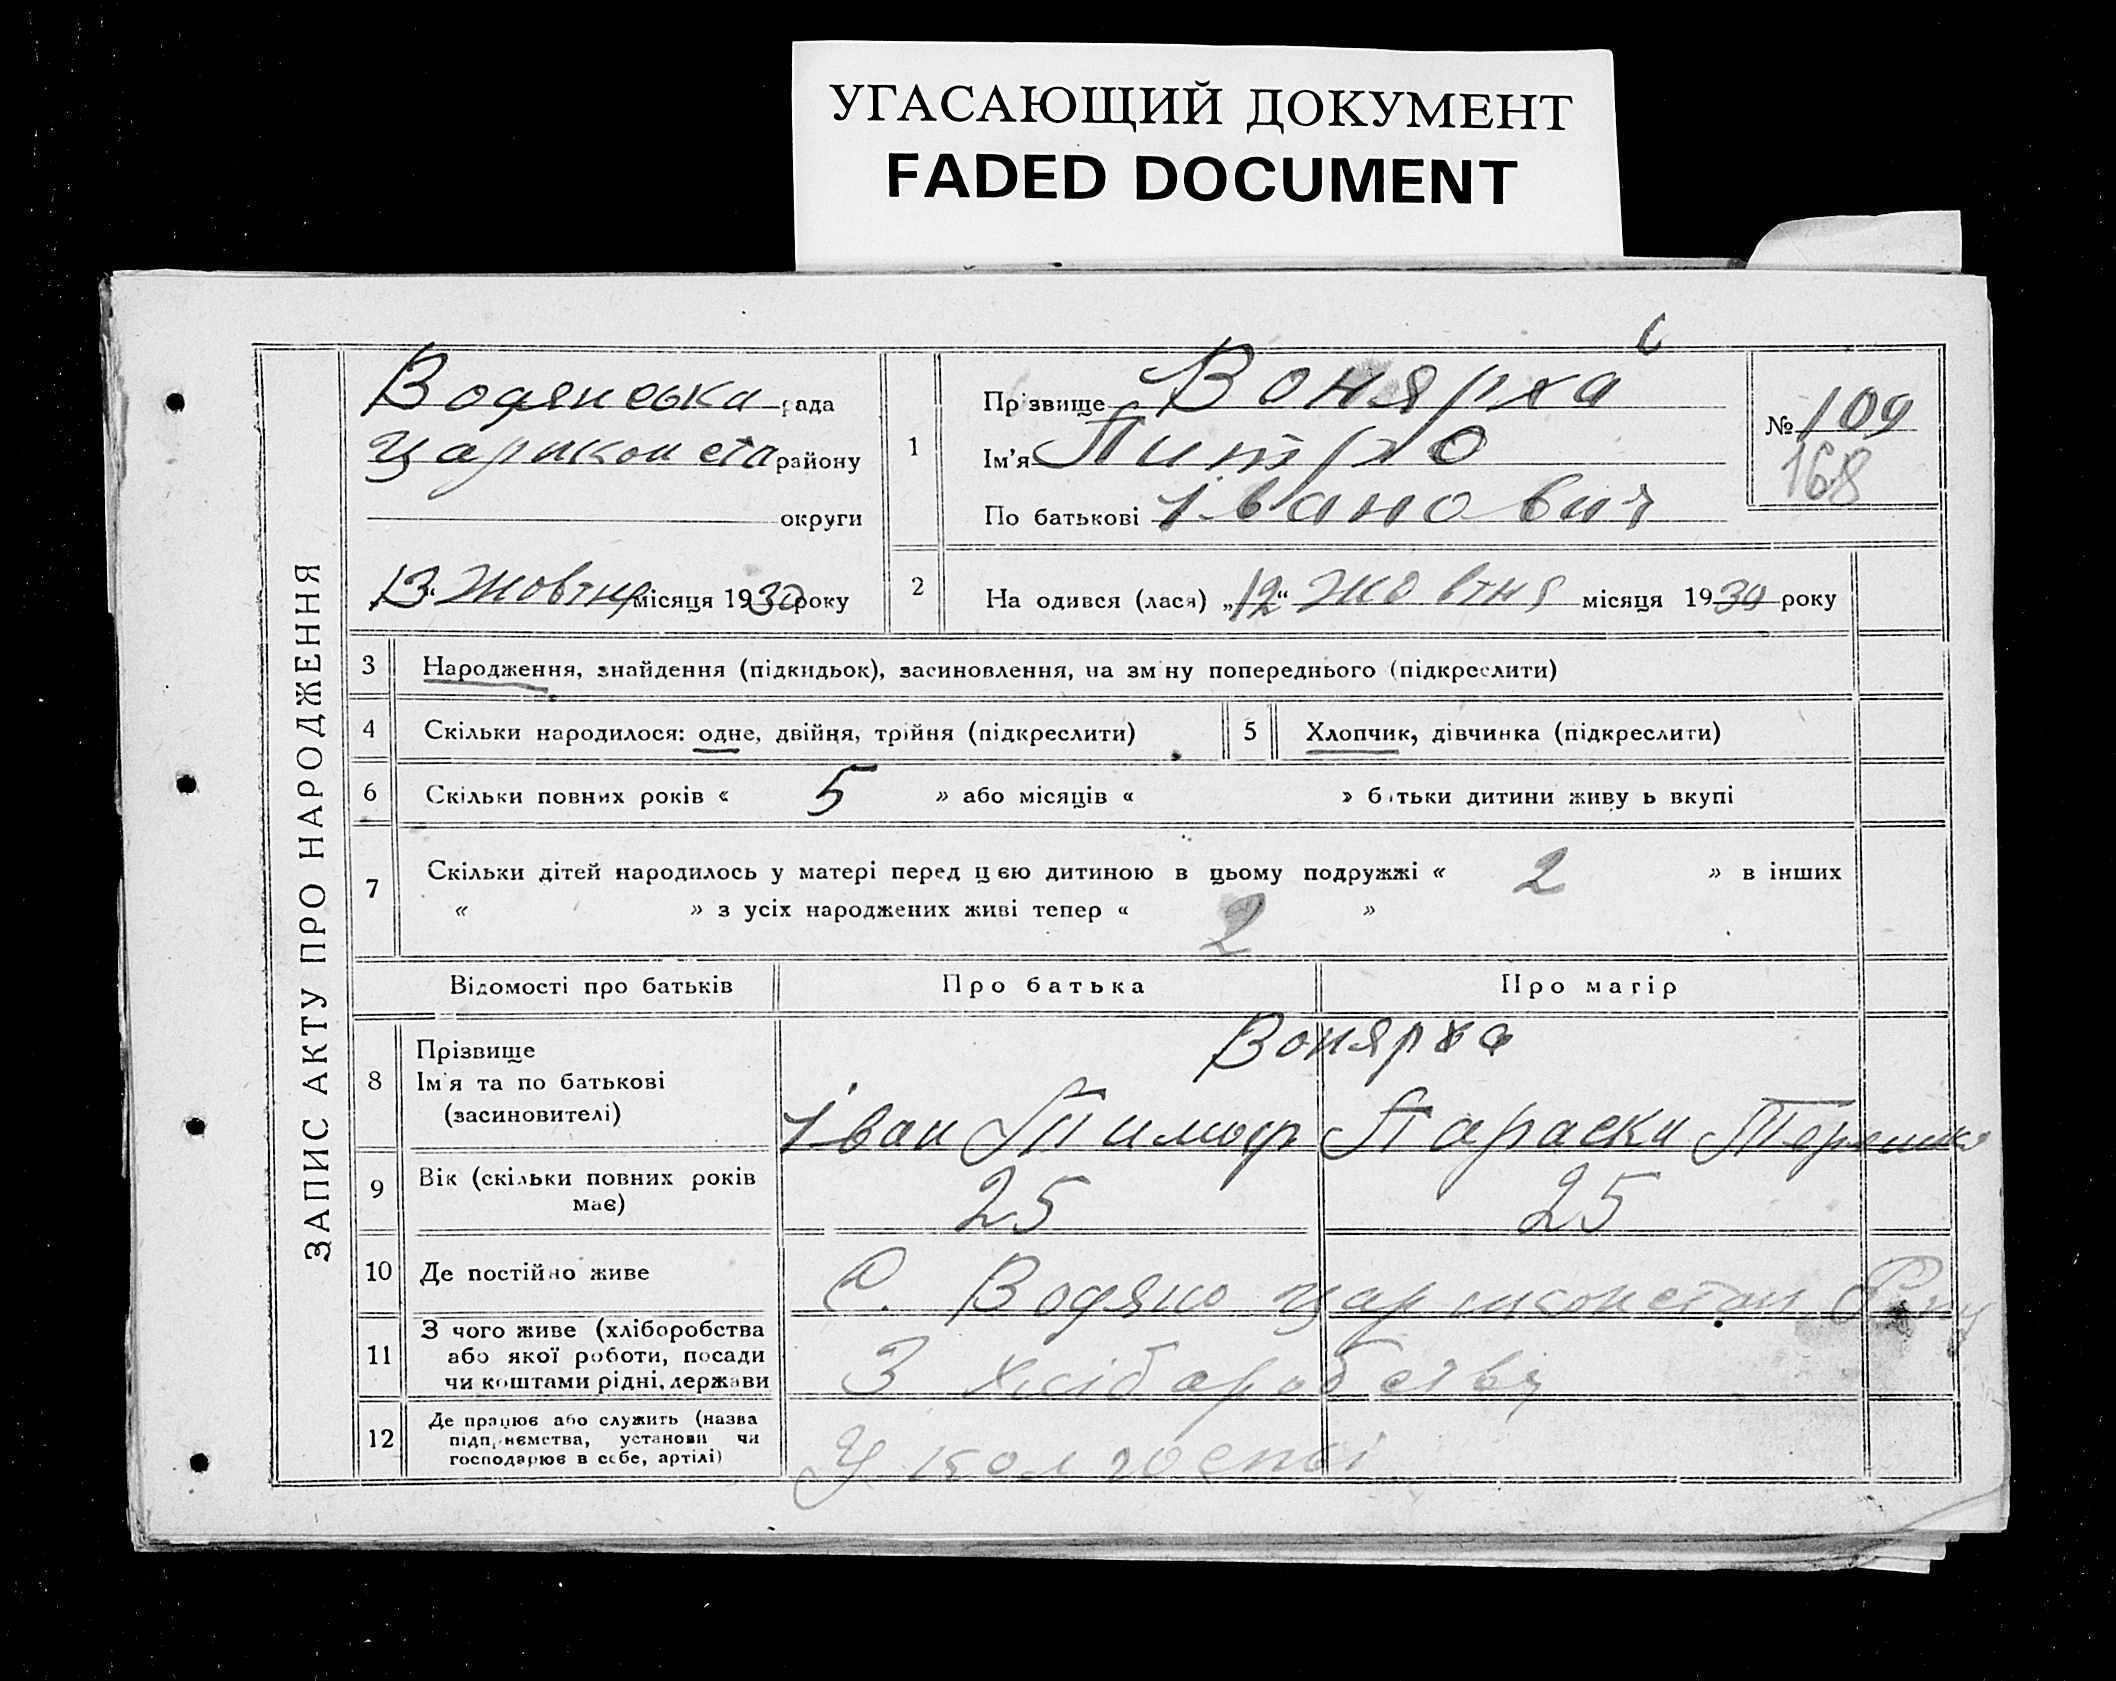 УГАСАЮЩИЙ ДОКУМЕНТ
FADED DOCUMENT
ЗАПИС АКТУ ПРО НАРОДЖЕННЯ
Водянська рада
району
округи
13 Жовтня місяця 1930 року
1
Прізвище Вонярха
Ім’я Питро
По батькові Іванович
№ 109
168
2
На одився (лася) „12“ Жовтня місяця 1930 року
3 Народження, знайдення (підкидьок), засиновлення, на зм ну попереднього (підкреслити)
4 Скільки народилося: одне, двійня, трійня (підкреслити)
5 Хлопчик, дівчинка (підкреслити)
6 Скільки повних років « 5 » або місяців « » б тьки дитини живу ь вкупі
7 Скільки дітей народилось у матері перед цею дитиною в цьому подружжі « 2 » в інших
« » з усіх народжених живі тепер « 2 »
Відомості про батьків
Про батька
Про матір
8 Прізвище
Ім’я та по батькові
(засиновителі)
Вонярха
Іван Тимоф
Параска
9 Вік (скільки повних років
має)
25
25
10 Де постійно живе
С. Водяно
11 З чого живе (хліборобства
або якої роботи, посади
чи коштами рідні, держави
З хлібаробства
12 Де працює або служить (назва
підприємства, установи чи
господарює в себе, артілі)
У колгоспі